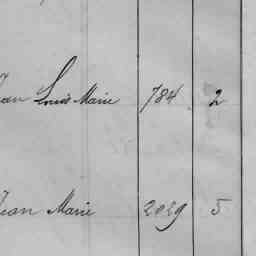 Jean Louis Marie 784 2
Jean Marie 2029 5